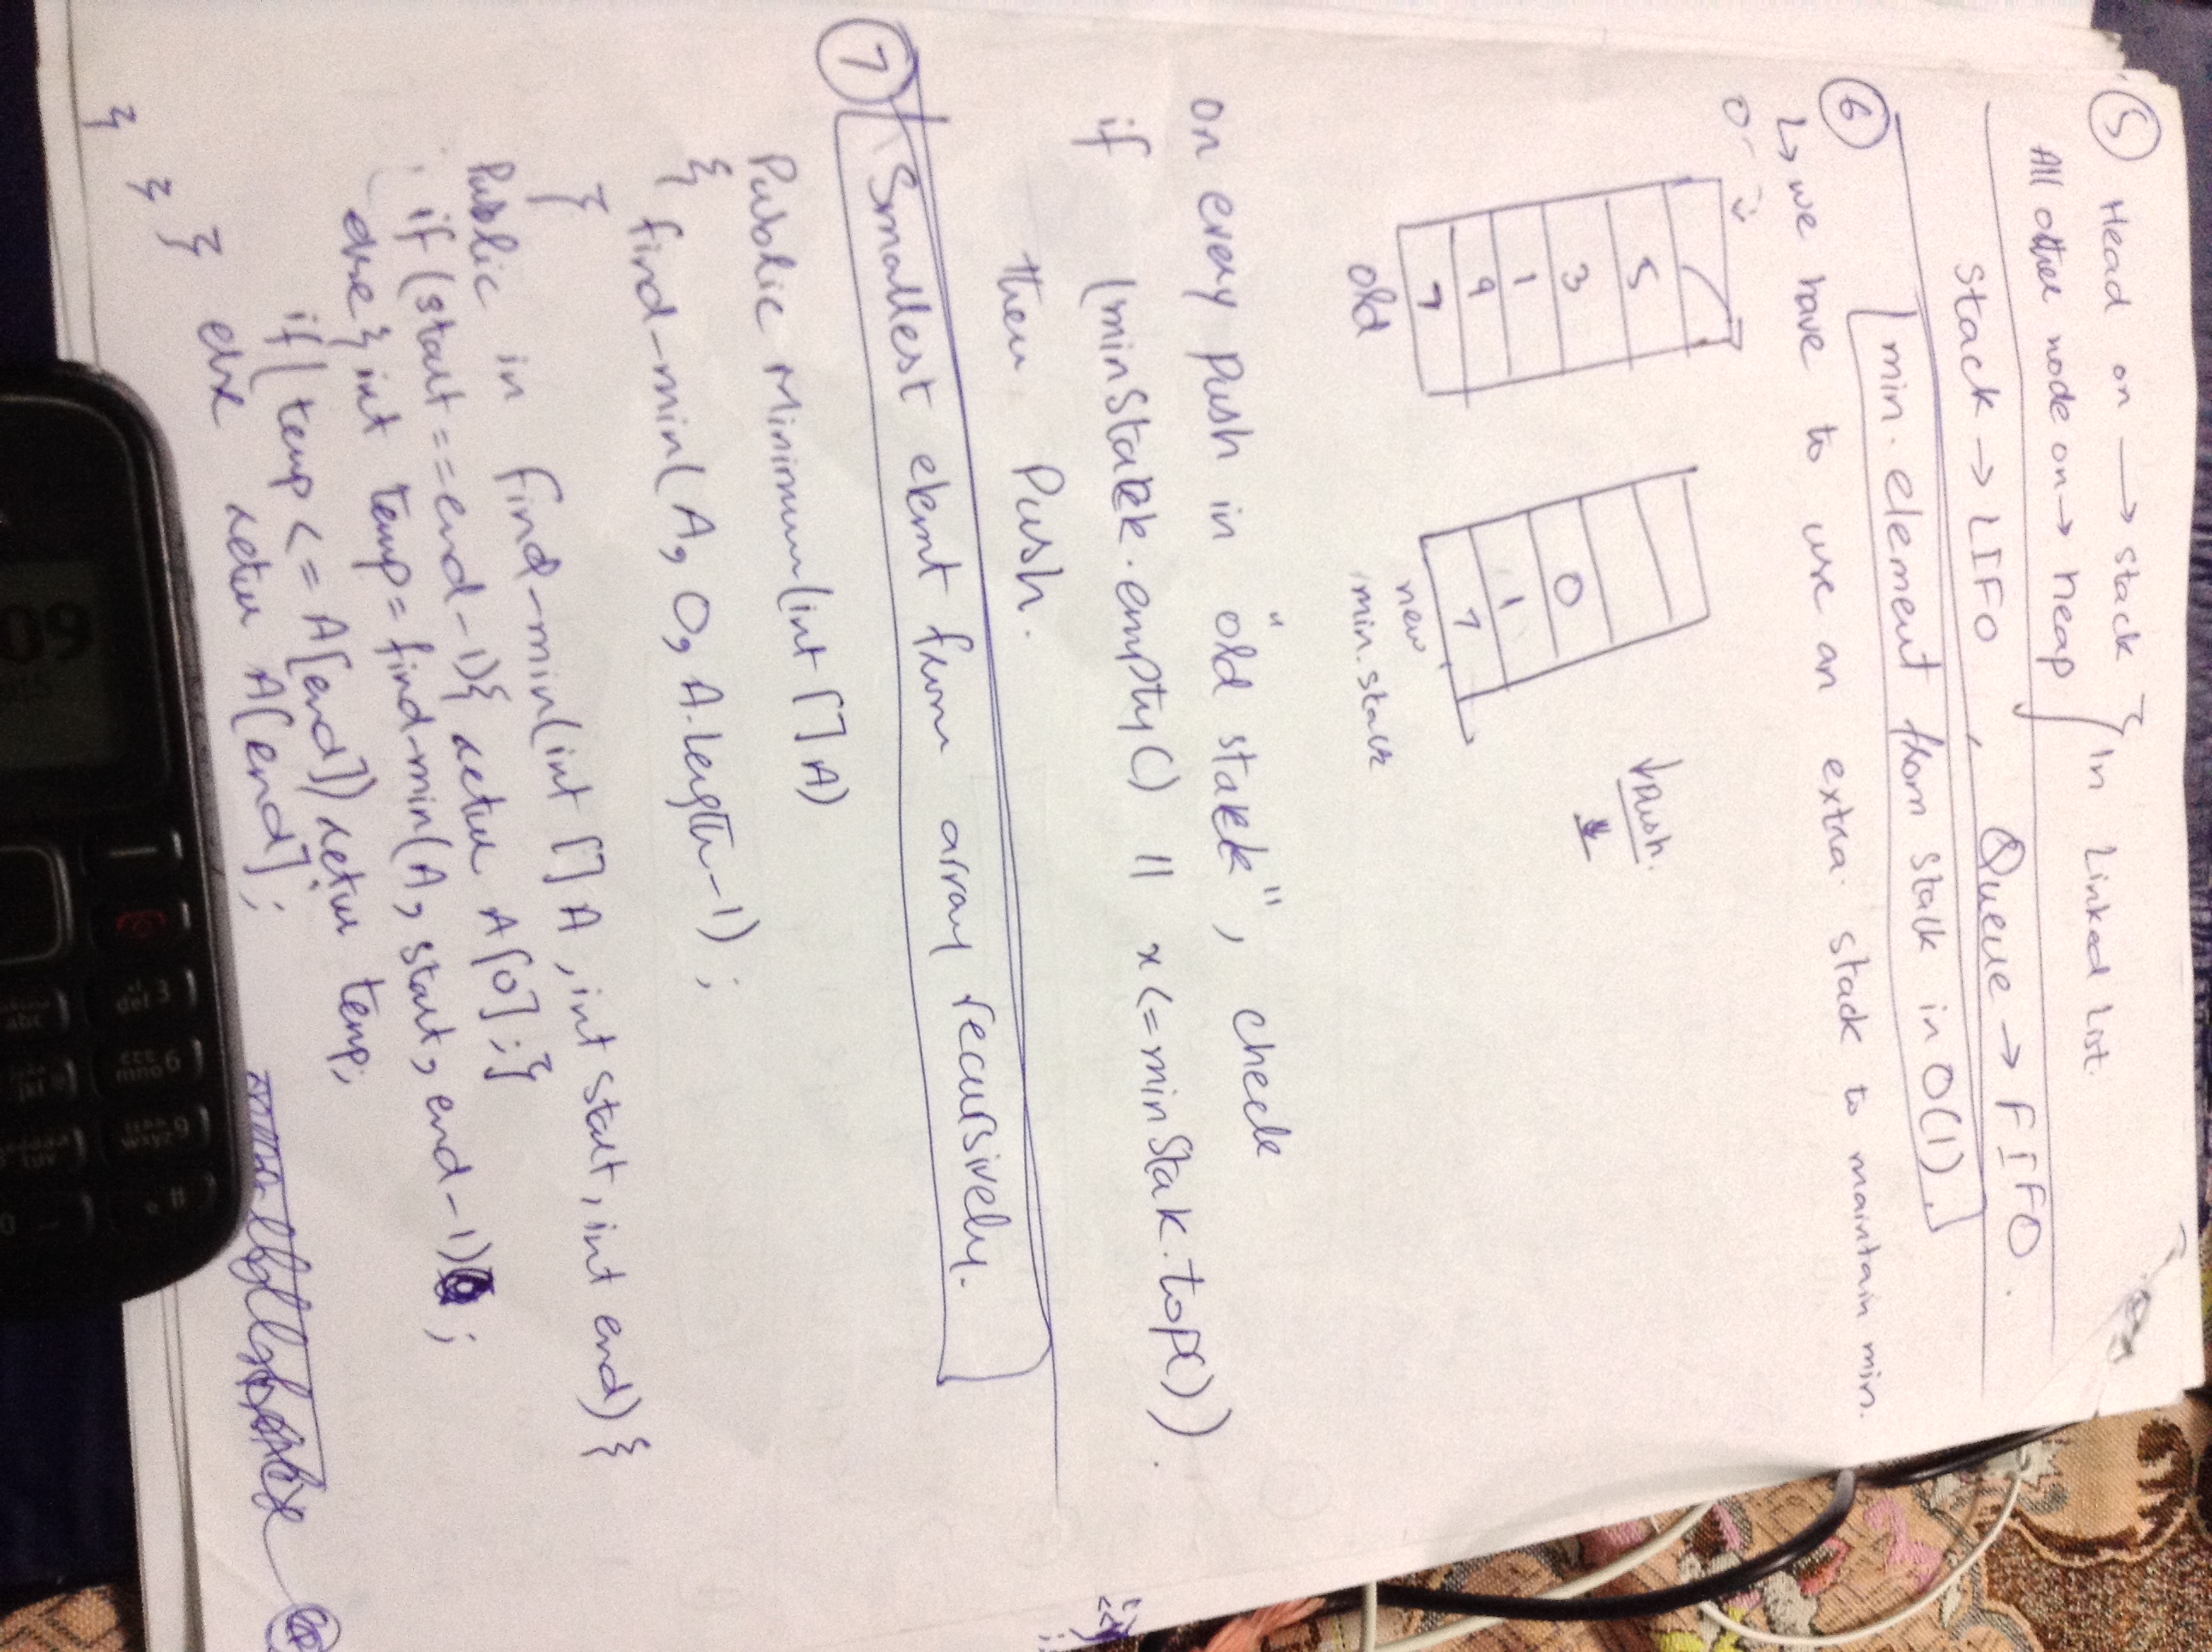 5 Head on → stack } In Linked List.
All other node on → heap
Stack → LIFO , Queue → FIFO.
min. element from stack in O(1).
6
↳ we have to use an extra stack to maintain min.
0
5
3
1
9
7
old
0
1
7
new
min. stack
↓ Push.
on every push in "old stack", check
if (minStack.empty() || x <= minStak.top()).
then Push.
7 Smallest elemt from array recursively.
Public Minimum(int [] A)
{
find-min(A, 0, A.length-1);
}
Public in find-min(int [] A, int start, int end) {
if (start == end-1){ retur A[0]; }
else { int temp = find-min(A, start, end-1) ;
if( temp <= A[end]) retur temp;
else retur A[end];
}
}
}